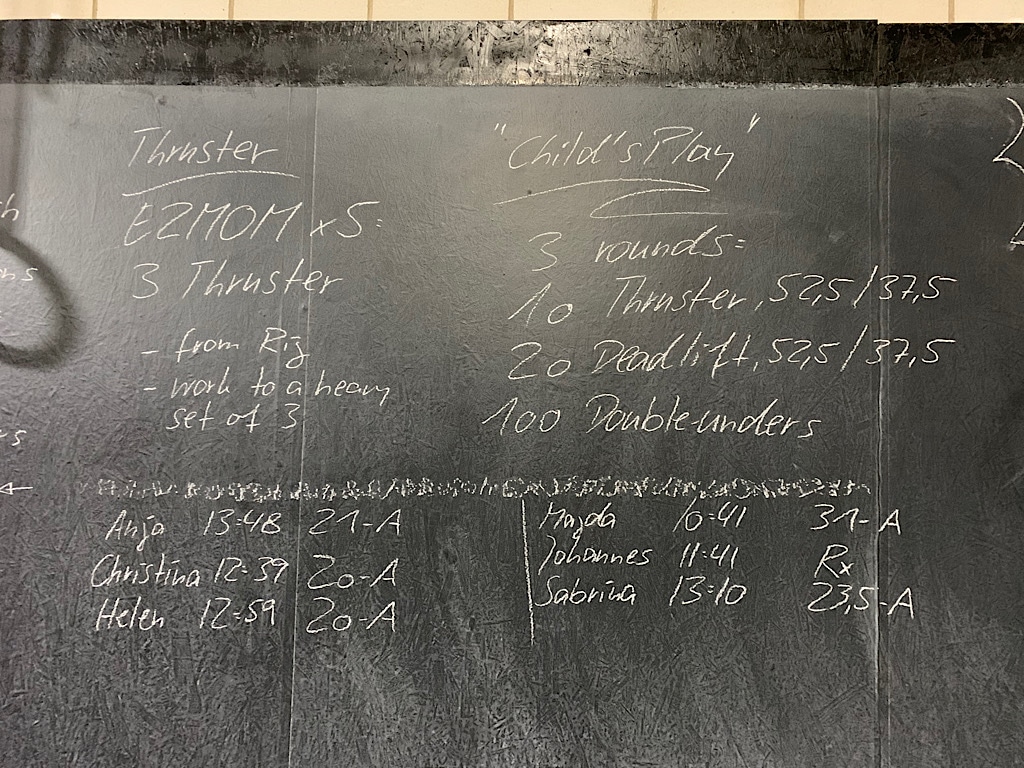 Thruster
E2MOM x5:
3 Thruster
- from Rig
- work to a heavy
set of 3
"Child's Play"
3 rounds:
10 Thruster, 52,5/37,5
20 Deadlift, 52,5/37,5
100 Double-unders
Anja 13:48 21-A
Christina 12:39 20-A
Helen 12:59 20-A
Magda 10:41 31-A
Johannes 11:41 Rx
Sabrina 13:10 23,5-A